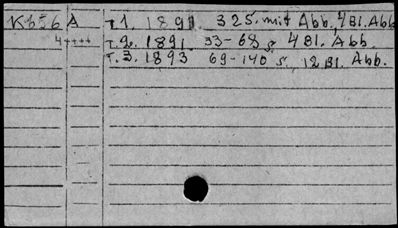 Kb56 A т.1. 1891. 32 S. mit Abb., 4 Bl. Abb
4++++ т.2. 1891. 33-68 s, 4 Bl. Abb.
т.3. 1893 69-140 s, 12 Bl. Abb.